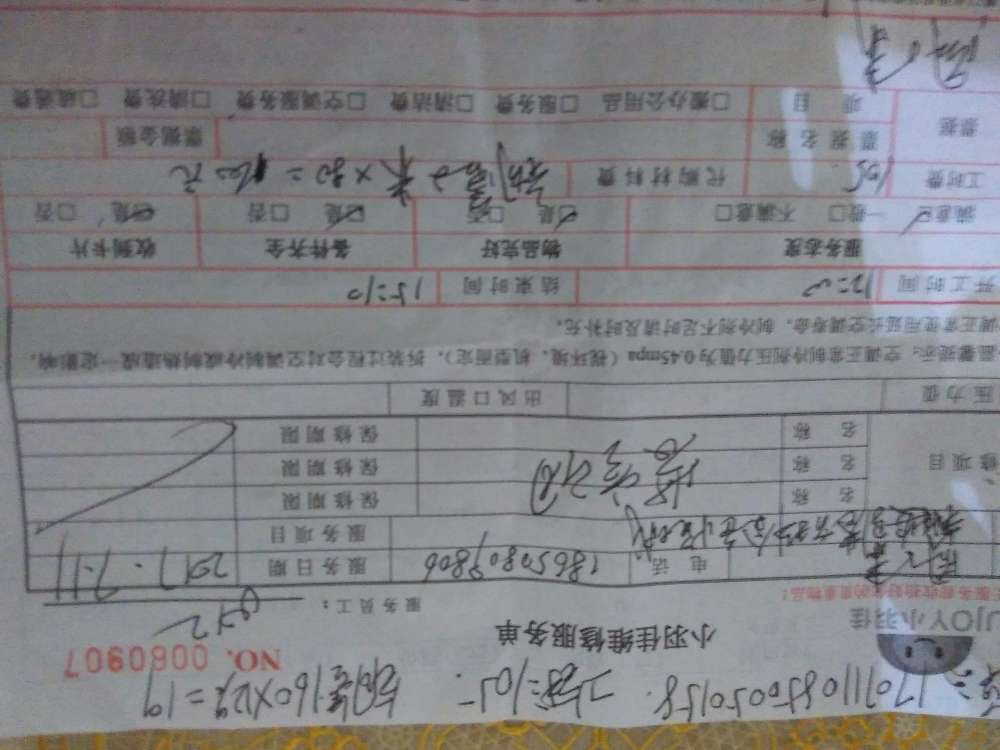 1707110850050158. 工费=105. 铜管160×12%=19
JJOY小羽佳
小羽佳维修服务单
NO. 0060907
服务员工：
电话 18650809806 服务日期 2017.7.11
服务项目
名称 保修期限
修项目 名称 保修期限
名称 保修期限
压力值 出风口温度
温馨提示：空调正常制冷剂压力值为0.45mpa（视环境、机型而定），拆装过程会对空调制冷或制热造成一定影响，
调正常使用延长空调寿命，制冷剂不足时请及时补充。
开工时间 12:00 结束时间 15:10
服务态度 物品完好 备件齐全 收到卡片
满意☑ 一般□ 不满意□ ☑是 □否 ☑是 □否 ☑是 □否
工时费 105. 代购材料费 铜管2米×80=160元
票据 票据名称 票据金额
项目 □办公用品 □服务费 □清洁费 □空调服务费 □清洗费 □疏通费